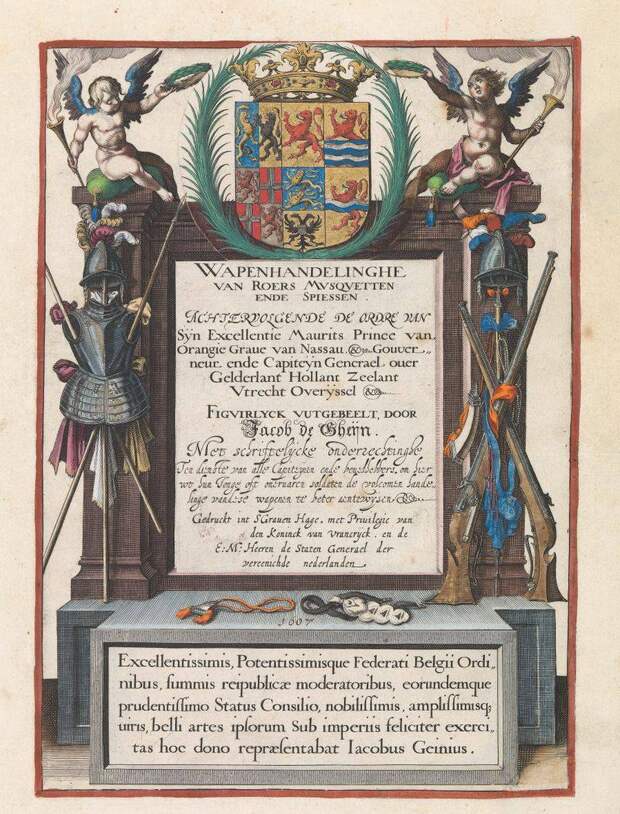 WAPENHANDELINGHE
VAN ROERS MVSQVETTEN
ENDE SPIESSEN.
ACHTERVOLGENDE DE ORDRE VAN
Sÿn Excellentie Maurits Prince van
Orangie Graue van Nassau. &c. Gouver„
neur ende Capiteyn Generael ouer
Gelderlant Hollant Zeelant
Vtrecht Overÿssel &c
FIGVIRLYCK VUTGEBEELT, DOOR
Jacob de Gheijn.
Met schriftelijcke onderrechtinghe
Ten dienste van alle Capiteijnen ende
oft onervaren soldaten de volcomen hande„
linge van dese wapenen te beter
Gedruckt int S'Graven Hage. met Privilegie van
den Koninck van Vrancryck. en de
E: M: Heeren de Staten Generael der
vereenichde nederlanden
1607
Excellentissimis, Potentissimisque Federati Belgii Ordi„
nibus, summis reipublicæ moderatoribus, eorundemque
prudentissimo Status Consilio, nobilissimis, amplissimisq;
uiris, belli artes ipsorum Sub imperiis feliciter exerci„
tas hoc dono repræsentabat Iacobus Geinius.